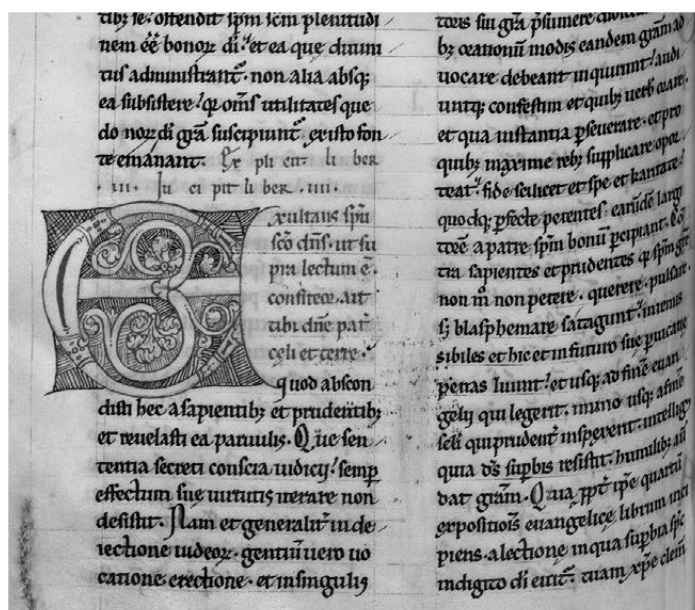 tibȝ se. offendit spm scm plenitudi
nem eē bonoꝝ di. et ea que diuini
tus administrant. non alia absqꝫ
ea subsistere. qr oms utilitates que
do noꝝ di gra suscipiunt. ex isto fon
te emanant. Ex pli cit li ber
. iii. In ci pit li ber . iiii.
Exultans spu
sco dns. ut su
pra lectum ē.
confiteor. ait
tibi dne pat
celi et terre.
quod abscon
disti hec a sapientibȝ et prudentibȝ
et reuelasti ea paruulis. Que sen
tentia secreti conscia iudicii. semp
effectum sue uirtutis iterare non
desistit. Nam et generalit in de
iectione iudeoꝝ. gentiū uero uo
catione erectione. et in singulis
toris sui gra psumere
bȝ orationū modis eandem gram ad
uocare debeant inquirunt. audi
untqꝫ confestim et quibȝ uerb orare.
et qua instantia pseuerare. et pro
quibȝ maxime rebȝ supplicare opor
teat. fide scilicet et spe et karitate.
quodqꝫ pfecte petentes. earūdē largi
tore a patre spm bonū pcipiant.
tra sapientes et prudentes qꝫ spm gre
non m non petere. querere. pulsare.
sȝ blasphemare satagunt. inuenis
sibiles et hic et in futuro sue puicacie
penas luunt. et usqꝫ ad finē euan
gelii qui legerit. immo usqꝫ a fine
scli qui prudent inspexerit. intelligit
quia ds supbis resistit. humilibȝ aū
dat gram. Qua ppt ipe quartū
expositiois euangelice librum inci
piens. a lectione in qua supbia
in digito di eicit. tuam xpe clem